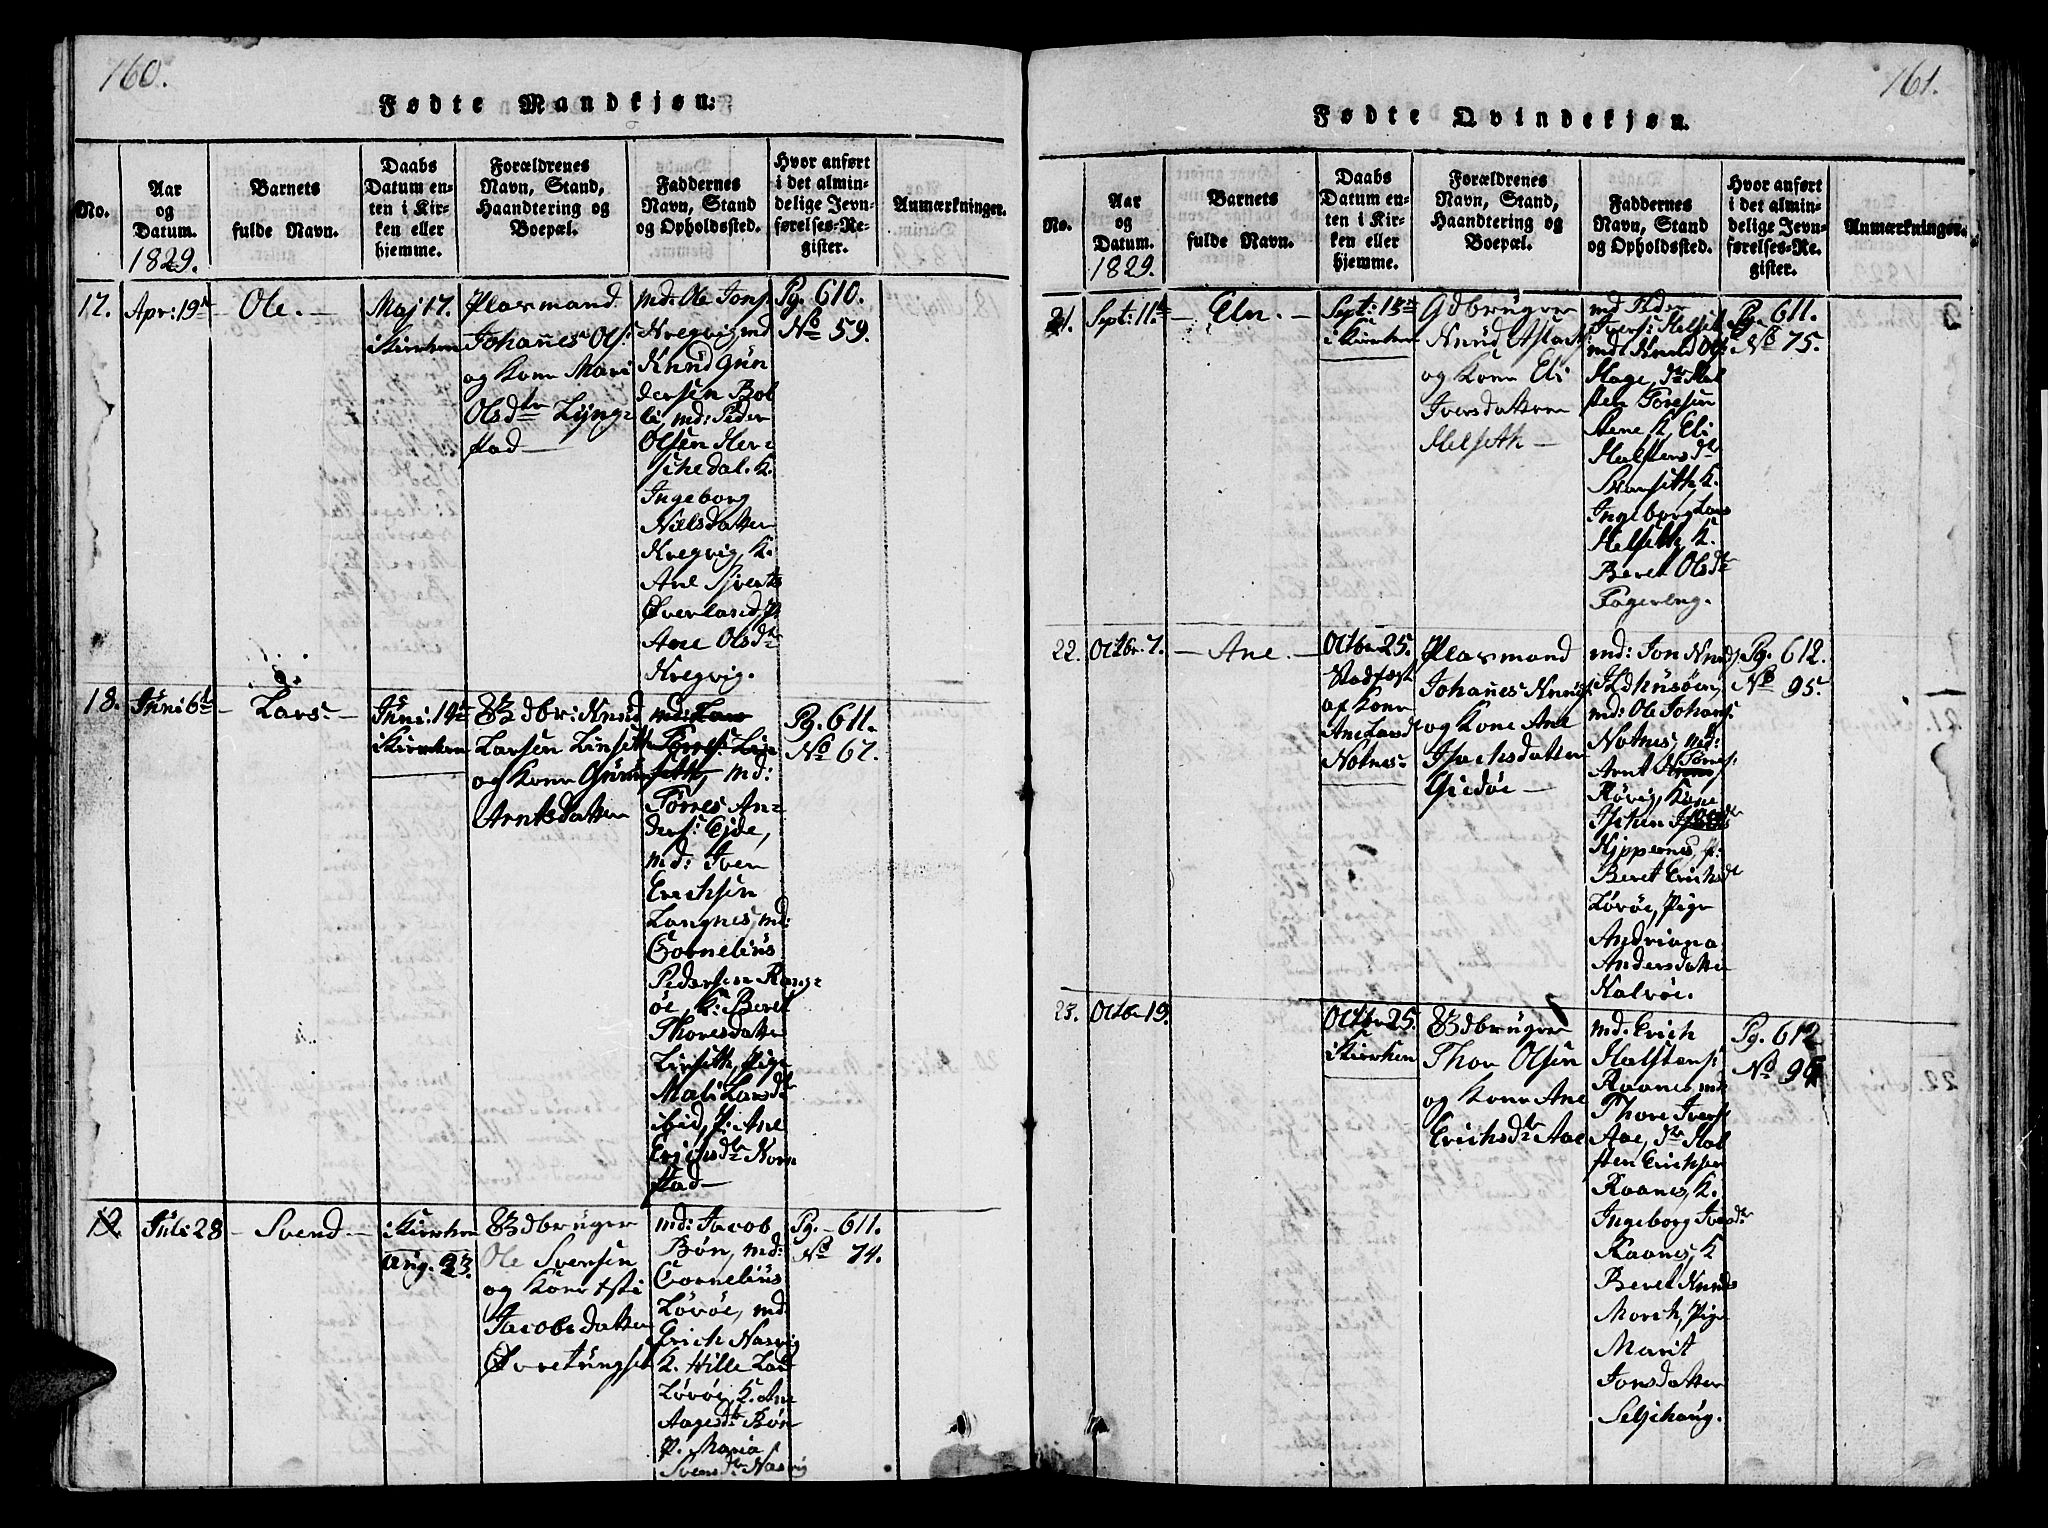 160.
Fødte Mandkjøn.
No.
Aar
og
Datum.
1829.
Barnets
fulde Navn.
Daabs
Datum en-
ten i Kir-
ken eller
hjemme.
Forældrenes
Navn, Stand,
Haandtering og
Boepæl.
Faddernes
Navn, Stand
og Opholdssted.
Hvor anført
i det almin-
delige Jevn-
førelses-Re-
gister.
Anmærkninger.
17.
Apr: 19de
Ole. —
Maj 17.
i Kirken
Plasmand
Johanes Ols:
og Kone Mari
Olsdtr Lyng-
stad —
md: Ole Jons:
Kregvig, md
Knud Gun
dersen Bol
li, md: Peder
Olsen Her-
schedal. K.
Ingeborg
Nielsdatter
Kregvig, K.
Ane Siverts
Øverland, P.
Ane Olsdtr
Kregvig.
Pg. 610.
No 59.
18.
Juni 6te
— Lars. —
Juni: 14de
i Kirken
Gdbr: Knud
Larsen Linseth
og Kone Guru
Arntsdatter
md: Lars
Torres: Lin
seth, md:
Torres An-
ders: Eide,
md: Iver
Erichsen
Langnes, md:
Cornelius
Pedersen Rang-
øe, K: Beret
Thoresdatter
Linseth, Pige
Mali Larsdtr
ibid, P: Ane
Erichsdtr Norn
stad —
Pg. 611.
No 67.
19.
Juli 28
— Svend. —
i Kirken
Aug. 23.
Gdbruger
Ole Svensen
og Kone
Jacobsdatter
md: Jacob
Bøn, md:
Cornelius
Lørøe, md:
Erich Nasvig
K. Hille Lars
Lørøe, K. Ane
Aagesdtr Bøn
P. Maria
Svensdtr Nasvig
Pg. — 611.
No 74.
161.
Fødte Qvindekjøn.
No.
Aar
og
Datum.
1829.
Barnets
fulde Navn.
Daabs
Datum en-
ten i Kir-
ken eller
hjemme.
Forældrenes
Navn, Stand,
Haandtering og
Boepæl.
Faddernes
Navn, Stand
og Opholdssted.
Hvor anført
i det almin-
delige Jevn-
førelses-Re-
gister.
Anmærkninger.
21.
Sept: 11te
— Elen. —
Sept: 13de
i Kirken
Gdbruger
Knud Aslachs:
og Kone Eli
Iversdatter
Helseth —
md Peder
Ivers: Helseth
md: Knud Ols:
Hage, dr Hal
sten Toresen
Stene K, Eli
Halstensdtr
K.
Ingeborg Lars
Helseth, K.
Beret Olsdtr
Fagereng.
Pg. 611.
No 75.
22.
Octbr. 7.
— Ane. —
Octbr 25.
Stadfæst
af Kone
Ane Larsdtr
Notnes.
Plasmand
Johanes Knuds:
og Kone Ane
Isachsdatter
Giedøe —
md: Jon Knuds.
Ildhusøen,
md: Ole Johans:
Notnes, md:
Arnt Torres:
Røvig, Kone
Kjppernes, P:
Beret Erichsdtr
Lørøe, Pige
Andriana
Andersdatter
Kalvøe.
Pg. 612.
No 95.
23.
Octbr 19.
Octbr 25.
i Kirken
Gdbruger
Thor Olsen
og Kone Ane
Erichsdtr Aae
md. Erich
Halstens:
Raanes, md:
Thore Ivers:
Aae, dr Hal
sten Erichsen
Raanes, K.
Ingeborg Iversdtr
Raanes, K
Beret Knuds
Morch, Pige
Marit
Jonsdatter
Seljehaug.
Pg. 612
No 96